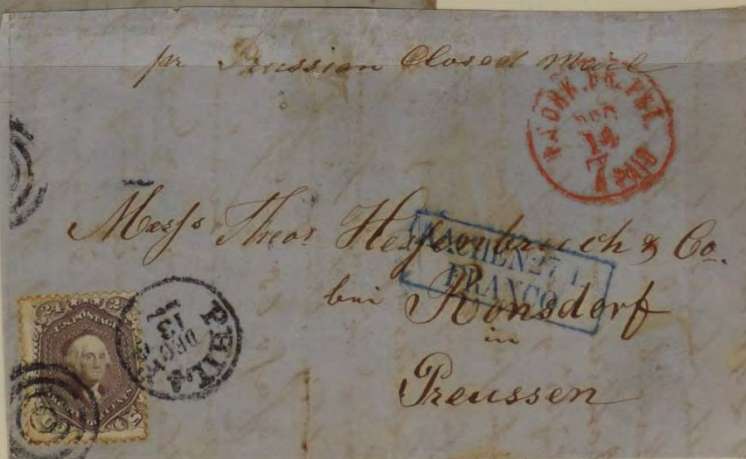 pr Prussian Closed Mail
N. YORK. BR. PKT.
DEC
14
7 PAID
Messrs Theos & Co.
AACHEN 27 1
FRANCO
bei Ronsdorf
in
Preussen
PHILA
DEC
13
24 24
U.S. POSTAGE